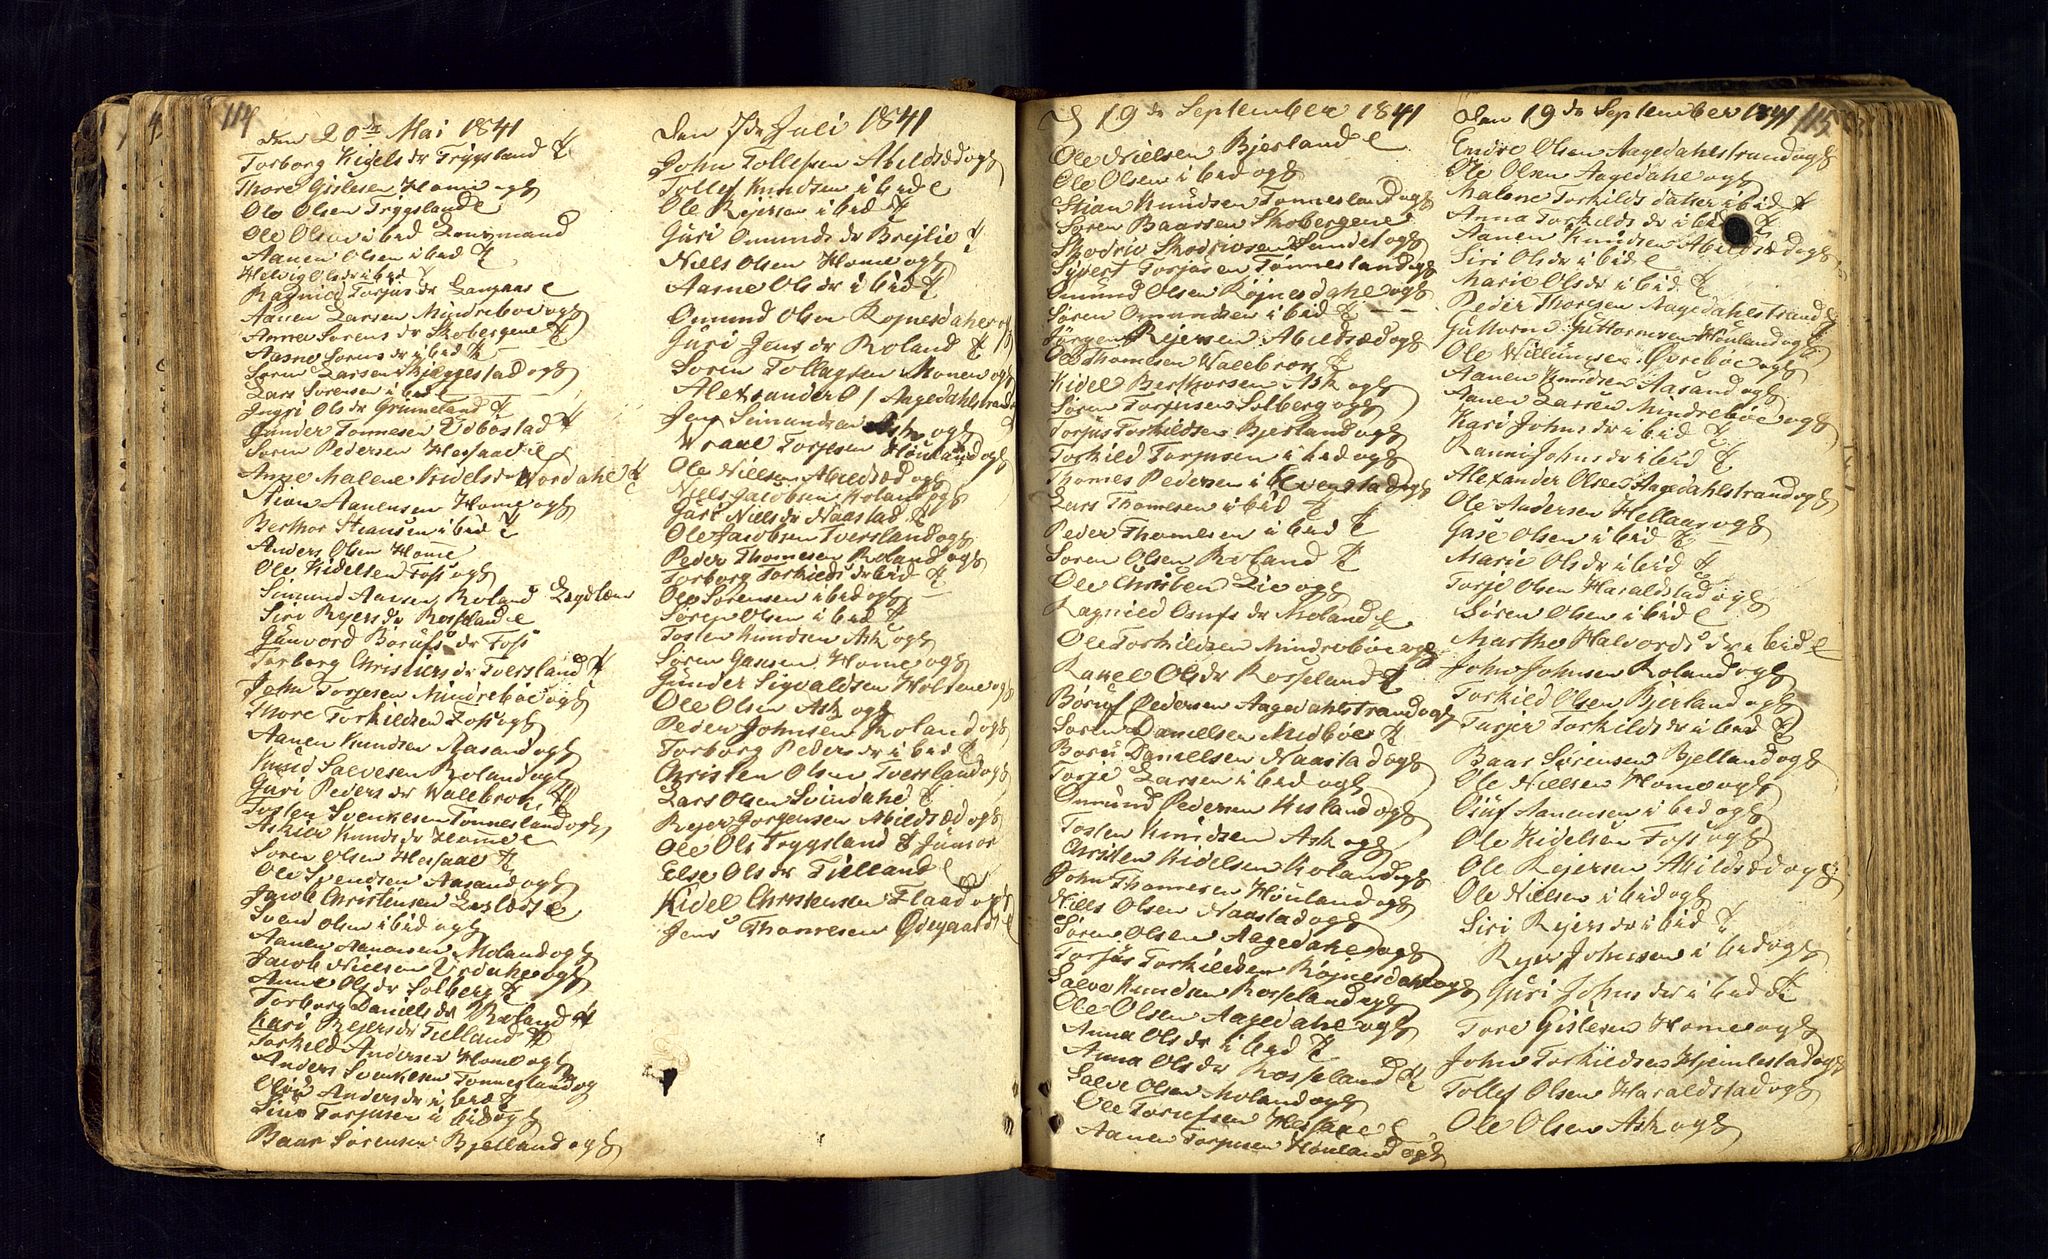 114
den 20de Mai 1841
Torborg Kidelsdr Trygsland
Thore Gislesen Home og
Ole Olsen Trygsland
Ole Olsen ibid Lensmand
Aanen Olsen ibid
Helvig Olsdr ibid
Ragnild Torjusdr Langaas
Aanen Larsen Mindrebøe og
Anne Sorensdr Skobergene
Aasne Sorensdr ibid
Soren Larsen Bjeggestad og
Lars Sorensen ibid
Ingri Olsdr Grimeland
Gunder Tonnesen
Soren Pedersen Hessaae
Anne Malene Kidelsdr
Stian Aanensen Home og
Berthor Stiansen ibid
Anders Olsen Home
Ole Kidelsen Foss og
Simund Aasen Roland
Siri Rejersdr Rosseland
Gunvord Børufsdr Foss
Torborg Christensdr Tversland
John Torjesen Mindrebøe og
Thore Torkildsen Foss og
Aanen Knudsen Aasand og
Knud Salvesen Roland og
Guri Pedersdr Wallebrok
Tosten Svenkesen Tonnesland og
Askier Knudsdr Home
Soren Olsen Hessaae
Ole Svendsen Aasand og
Jacob Christensen
Svend Olsen ibid og
Aanen Aanensen Moland og
Jacob Nielsen og
Anne Olsdr Solberg
Torborg Danielsdr Roland
Kari Rejersdr Tielland
Torkild Andersen Home og
Anders Svenkesen Tonnesland og
Oløv Andersdr ibid
Torjusen ibid og
Baar Sørensen Bjelland og
Den 7de Juli 1841
John Tollefsen Abildsæd og
Tollef Knudsen ibid
Ole Rejersen ibid
Guri Omundsdr Brejlie
Niels Olsen Home og
Aasne Olsdr ibid
Omund Olsen Rojnesdahe og
Guri Jensdr Roland
Soren Tollagsen Monen og
Alexander Ol Aagedahlstrand
Jens Simundsen Ask og
Wraal Torjesen Houland og
Ole Nielsen Abildsæd og
Niels Jacobsen Roland og
Gase Nielsdr Naastad
Ole Jacobsen Tversland og
Peder Thomesen Roland og
Torborg Torkildsdr ibid
Ole Sørensen ibid og
Søren Olsen ibid
Tosten Knudsen Ask og
Søren Gasesen Home og
Gunder Sigvaldsen Holtene og
Ole Olsen Ask og
Peder Johnsen Roland og
Torborg Pedersdr ibid
Christen Olsen Tversland og
Lars Olsen Svindahl
Rejer Jorgensen Abildsæd og
Ole Ols Trygsland Junior
Else Olsdr Tielland
Kidel Christensen Flaad og
Jens Thomesen Ødegaard
D 19de September 1841
Ole Nielsen Bjerland
Ole Olsen ibid og
Stian Knudsen Tonnesland og
Søren Baarsen Skobergene
Skodric Skodricsen Sundet og
Syvert Torjusen Tønnesland og
Omund Olsen Røjnesdahe og
Søren Omundsen ibid
Jørgen Rejersen Abildsæd og
Ole Thomesen Wallebrok
Kidel Berthorsen Ask og
Søren Torjusen Solberg og
Torjus Torkildsen Bjerland og
Torkild Torjusen ibid og
Thomes Pedersen i Evenstad og
Lars Thomesen ibid
Peder Thomesen ibid
Soren Olsen Roland
Ole Christen Lie og
Ragnild Osufsdr Moland
Ole Torkildsen Mindrebøe og
Rakel Olsdr Rosseland
Børuf Pedersen Aagedahlstrand og
Soren Danielsen Midbøe
Boruf Danielsen Naastad og
Torje Larsen ibid og
Omund Pedersen Hesland og
Tosten Knudsen Ask og
Christen Kidelsen Roland og
John Thomesen Houland og
Niels Olsen Naastad og
Søren Olsen Aagedahe og
Torjus Torkildsen Røjnesdahe og
Salve Knudsen Rosseland og
Ole Olsen Aagedahe og
Anna Olsdr ibid
Anna Olsdr Rosseland
Salve Olsen Moland og
Ole Torjusen Hessaae
Aanen Torjusen Houland og
115
Den 19de September 1841
Endre Olsen Aagedahlstrand og
Ole Olsen Aagedahe og
Malene Torkilds datter ibid
Anna Torkildsdr ibid
Aanen Knudsen Abildsæd og
Siri Olsdr ibid
Marie Olsdr ibid
Peder Thoresen Aagedahlstrand
Guttorm Guttormsen Houland og
Ole Willumsen Øvrebøe og
Aanen Knudsen Aasand og
Aanen Larsen Mindrebøe og
Kari Johnsdr ibid
Ranni Johnsdr ibid
Alexander Olsen Aagedahlstrand og
Ole Andersen Hellaas og
Gase Olsen ibid
Marie Olsdr ibid
Torje Olsen Haraldstad og
Søren Olsen ibid
Marthe Halvordsdr ibid
John Johnsen Roland og
Torkild Olsen Bjerland og
Torkildsdr ibid
Baar Sørensen Bjelland og
Ole Nielsen Home og
Oluf Aanensen ibid og
Ole Kidelsen Foss og
Ole Rejersen Abildsæd og
Ole Nielsen ibid og
Siri Rejersdr ibid
Rejer Johnsen ibid og
Guri Johnsdr ibid
Tore Gislesen Home og
John Torkildsen Hjemlestad og
Tollef Olsen Haraldstad og
Ole Olsen Ask og